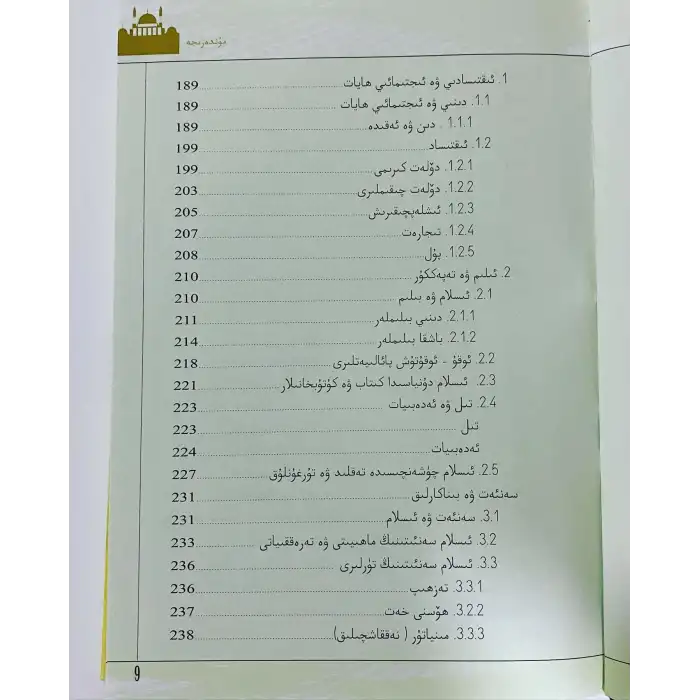 مۇندەرىجە
1. ئىقتىسادىي ۋە ئىجتىمائىي ھايات 189
1.1. دىنىي ۋە ئىجتىمائىي ھايات 189
1.1.1. دىن ۋە ئەقىدە 189
1.2. ئىقتىساد 199
1.2.1. دۆلەت كىرىمى 199
1.2.2. دۆلەت چىقىملىرى 203
1.2.3. ئىشلەپچىقىرىش 205
1.2.4. تىجارەت 207
1.2.5. پۇل 208
2. ئىلىم ۋە تەپەككۇر 210
2.1. ئىسلام ۋە بىلىم 210
2.1.1. دىنىي بىلىملەر 211
2.1.2. باشقا بىلىملەر 214
2.2. ئوقۇ - ئوقۇتۇش پائالىيەتلىرى 218
2.3. ئىسلام دۇنياسىدا كىتاب ۋە كۇتۇبخانىلار 221
2.4. تىل ۋە ئەدەبىيات 223
تىل 223
ئەدەبىيات 224
2.5. ئىسلام چۈشەنچىسىدە تەقلىد ۋە تۇرغۇنلۇق 227
سەنئەت ۋە بىناكارلىق 231
3.1. سەنئەت ۋە ئىسلام 231
3.2. ئىسلام سەنئىتىنىڭ ماھىيىتى ۋە تەرەققىياتى 233
3.3. ئىسلام سەنئىتىنىڭ تۈرلىرى 236
3.3.1. تەزھىب 236
3.2.2. ھۆسنى خەت 237
3.3.3. مىنياتۇر ( نەققاشچىلىق) 238
9